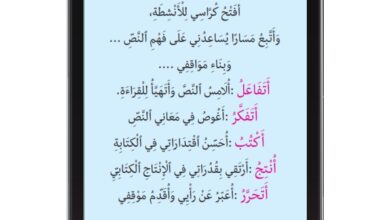 أَفْتَحُ كُرَّاسِي لِلْأَنْشِطَةِ،
وَأَتَّبِعُ مَسَارًا يُسَاعِدُنِي عَلَى فَهْمِ ٱلنَّصِّ ...
وَبِنَاءِ مَوَاقِفِي ....
أَتَفَاعَلُ :أُلَامِسُ ٱلنَّصَّ وَأَتَهَيَّأُ لِلْقِرَاءَةِ.
أَتَفَكَّرُ :أَغُوصُ فِي مَعَانِي ٱلنَّصِّ
أَكْتُبُ :أُحَسِّنُ ٱقْتِدَارَاتِي فِي ٱلْكِتَابَةِ
أُنْتِجُ :أَرْتَقِي بِقُدُرَاتِي فِي ٱلْإِنْتَاجِ ٱلْكِتَابِيِّ
أَتَحَرَّرُ :أُعَبِّرُ عَنْ رَأْيِي وَأُقَدِّمُ مَوْقِفِي